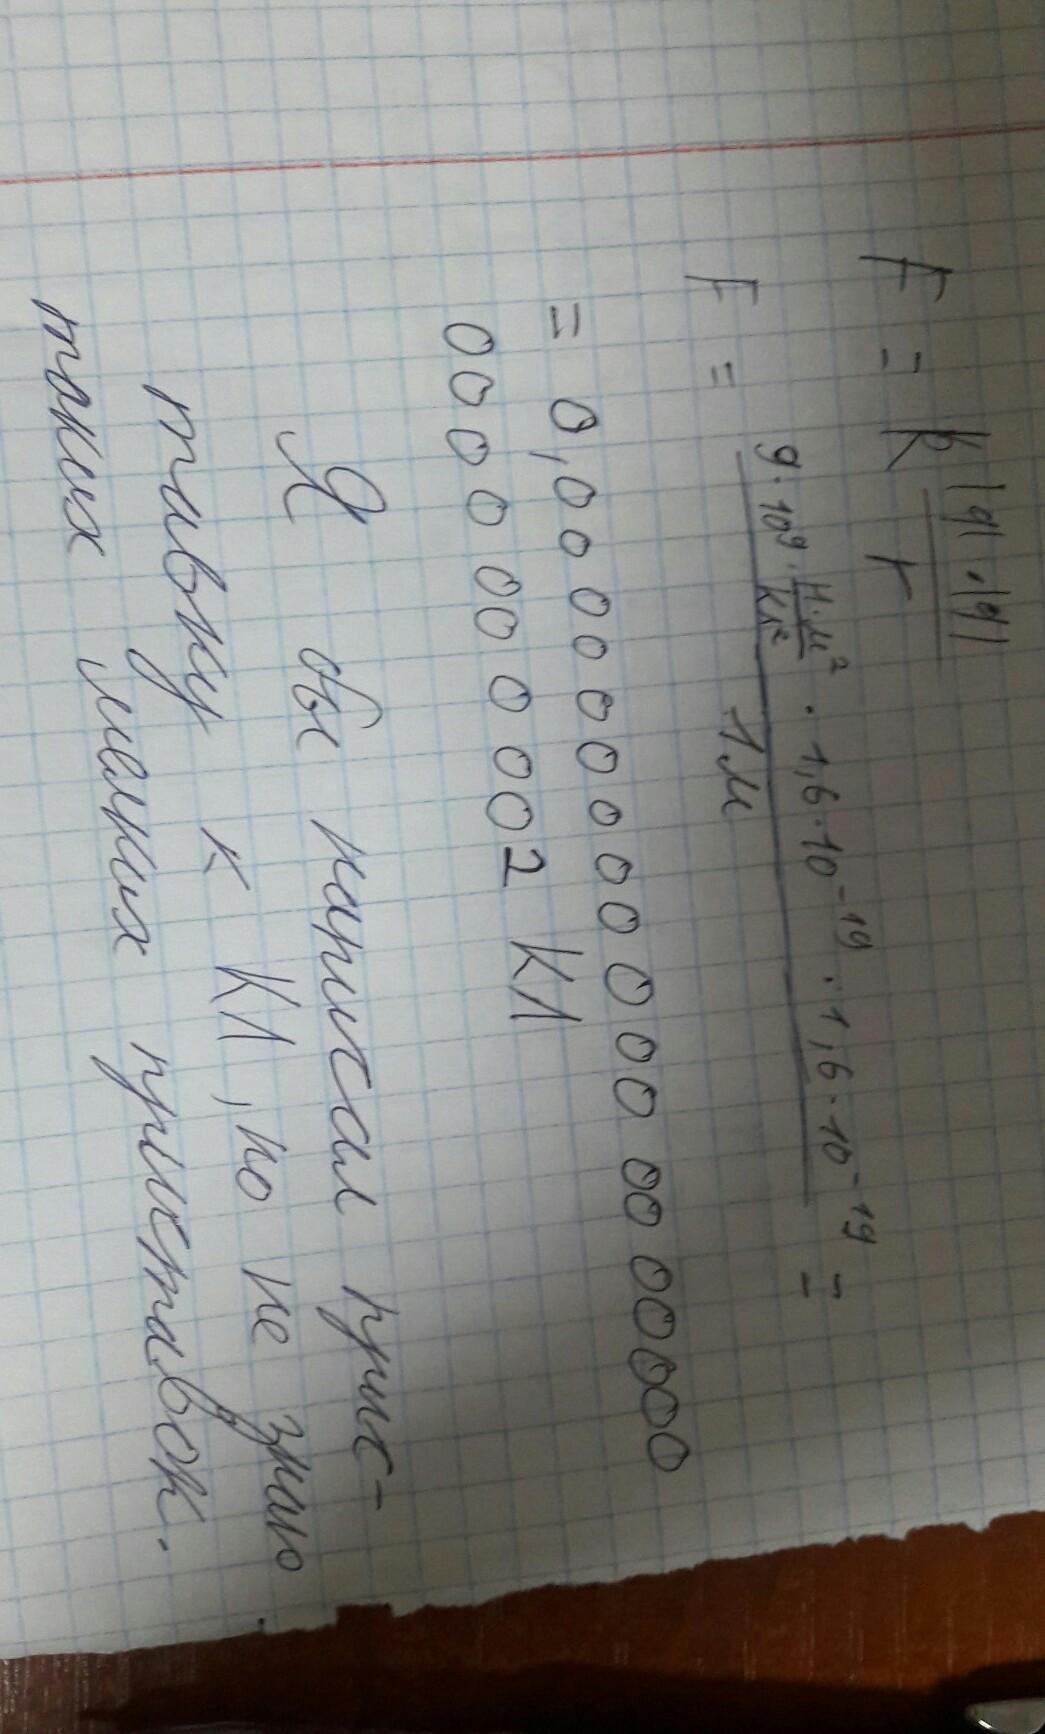 F = k |q|·|q| / r
F = 9·10⁹·Н·м²/Кл² · 1,6·10⁻¹⁹ · 1,6·10⁻¹⁹ / 1м =
= 0,0000000000000000000
0000000002 Кл
Я бы написал прис-
тавку к Кл, но не знаю
таких мелких приставок.